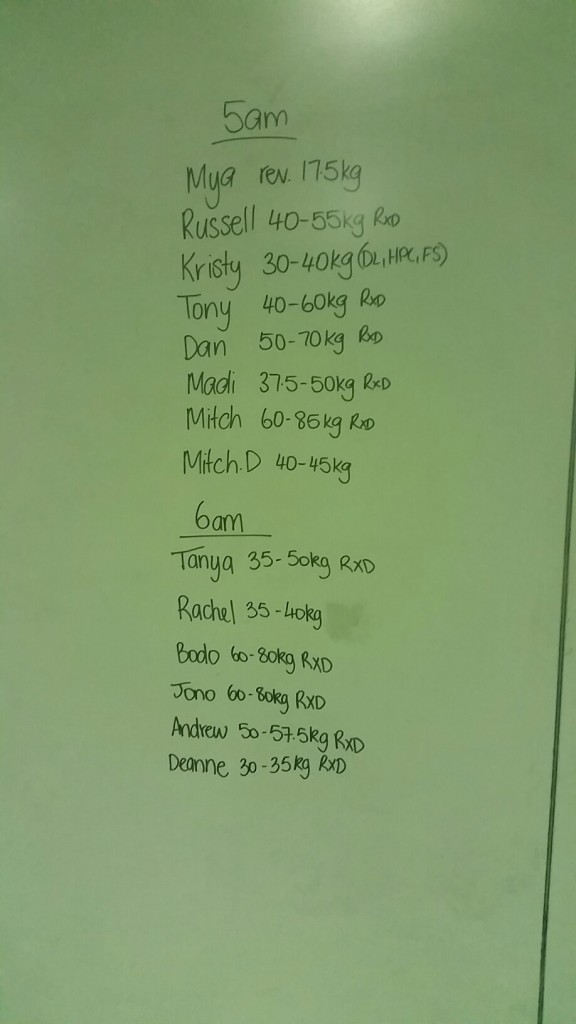 5am
Mya rev. 17.5kg
Russell 40-55kg RxD
Kristy 30-40kg (DL, HPC, FS)
Tony 40-60kg RxD
Dan 50-70kg RxD
Madi 37.5-50kg RxD
Mitch 60-85kg RxD
Mitch.D 40-45kg
6am
Tanya 35-50kg RXD
Rachel 35-40kg
Bodo 60-80kg RXD
Jono 60-80kg RXD
Andrew 50-57.5kg RXD
Deanne 30-35kg RXD